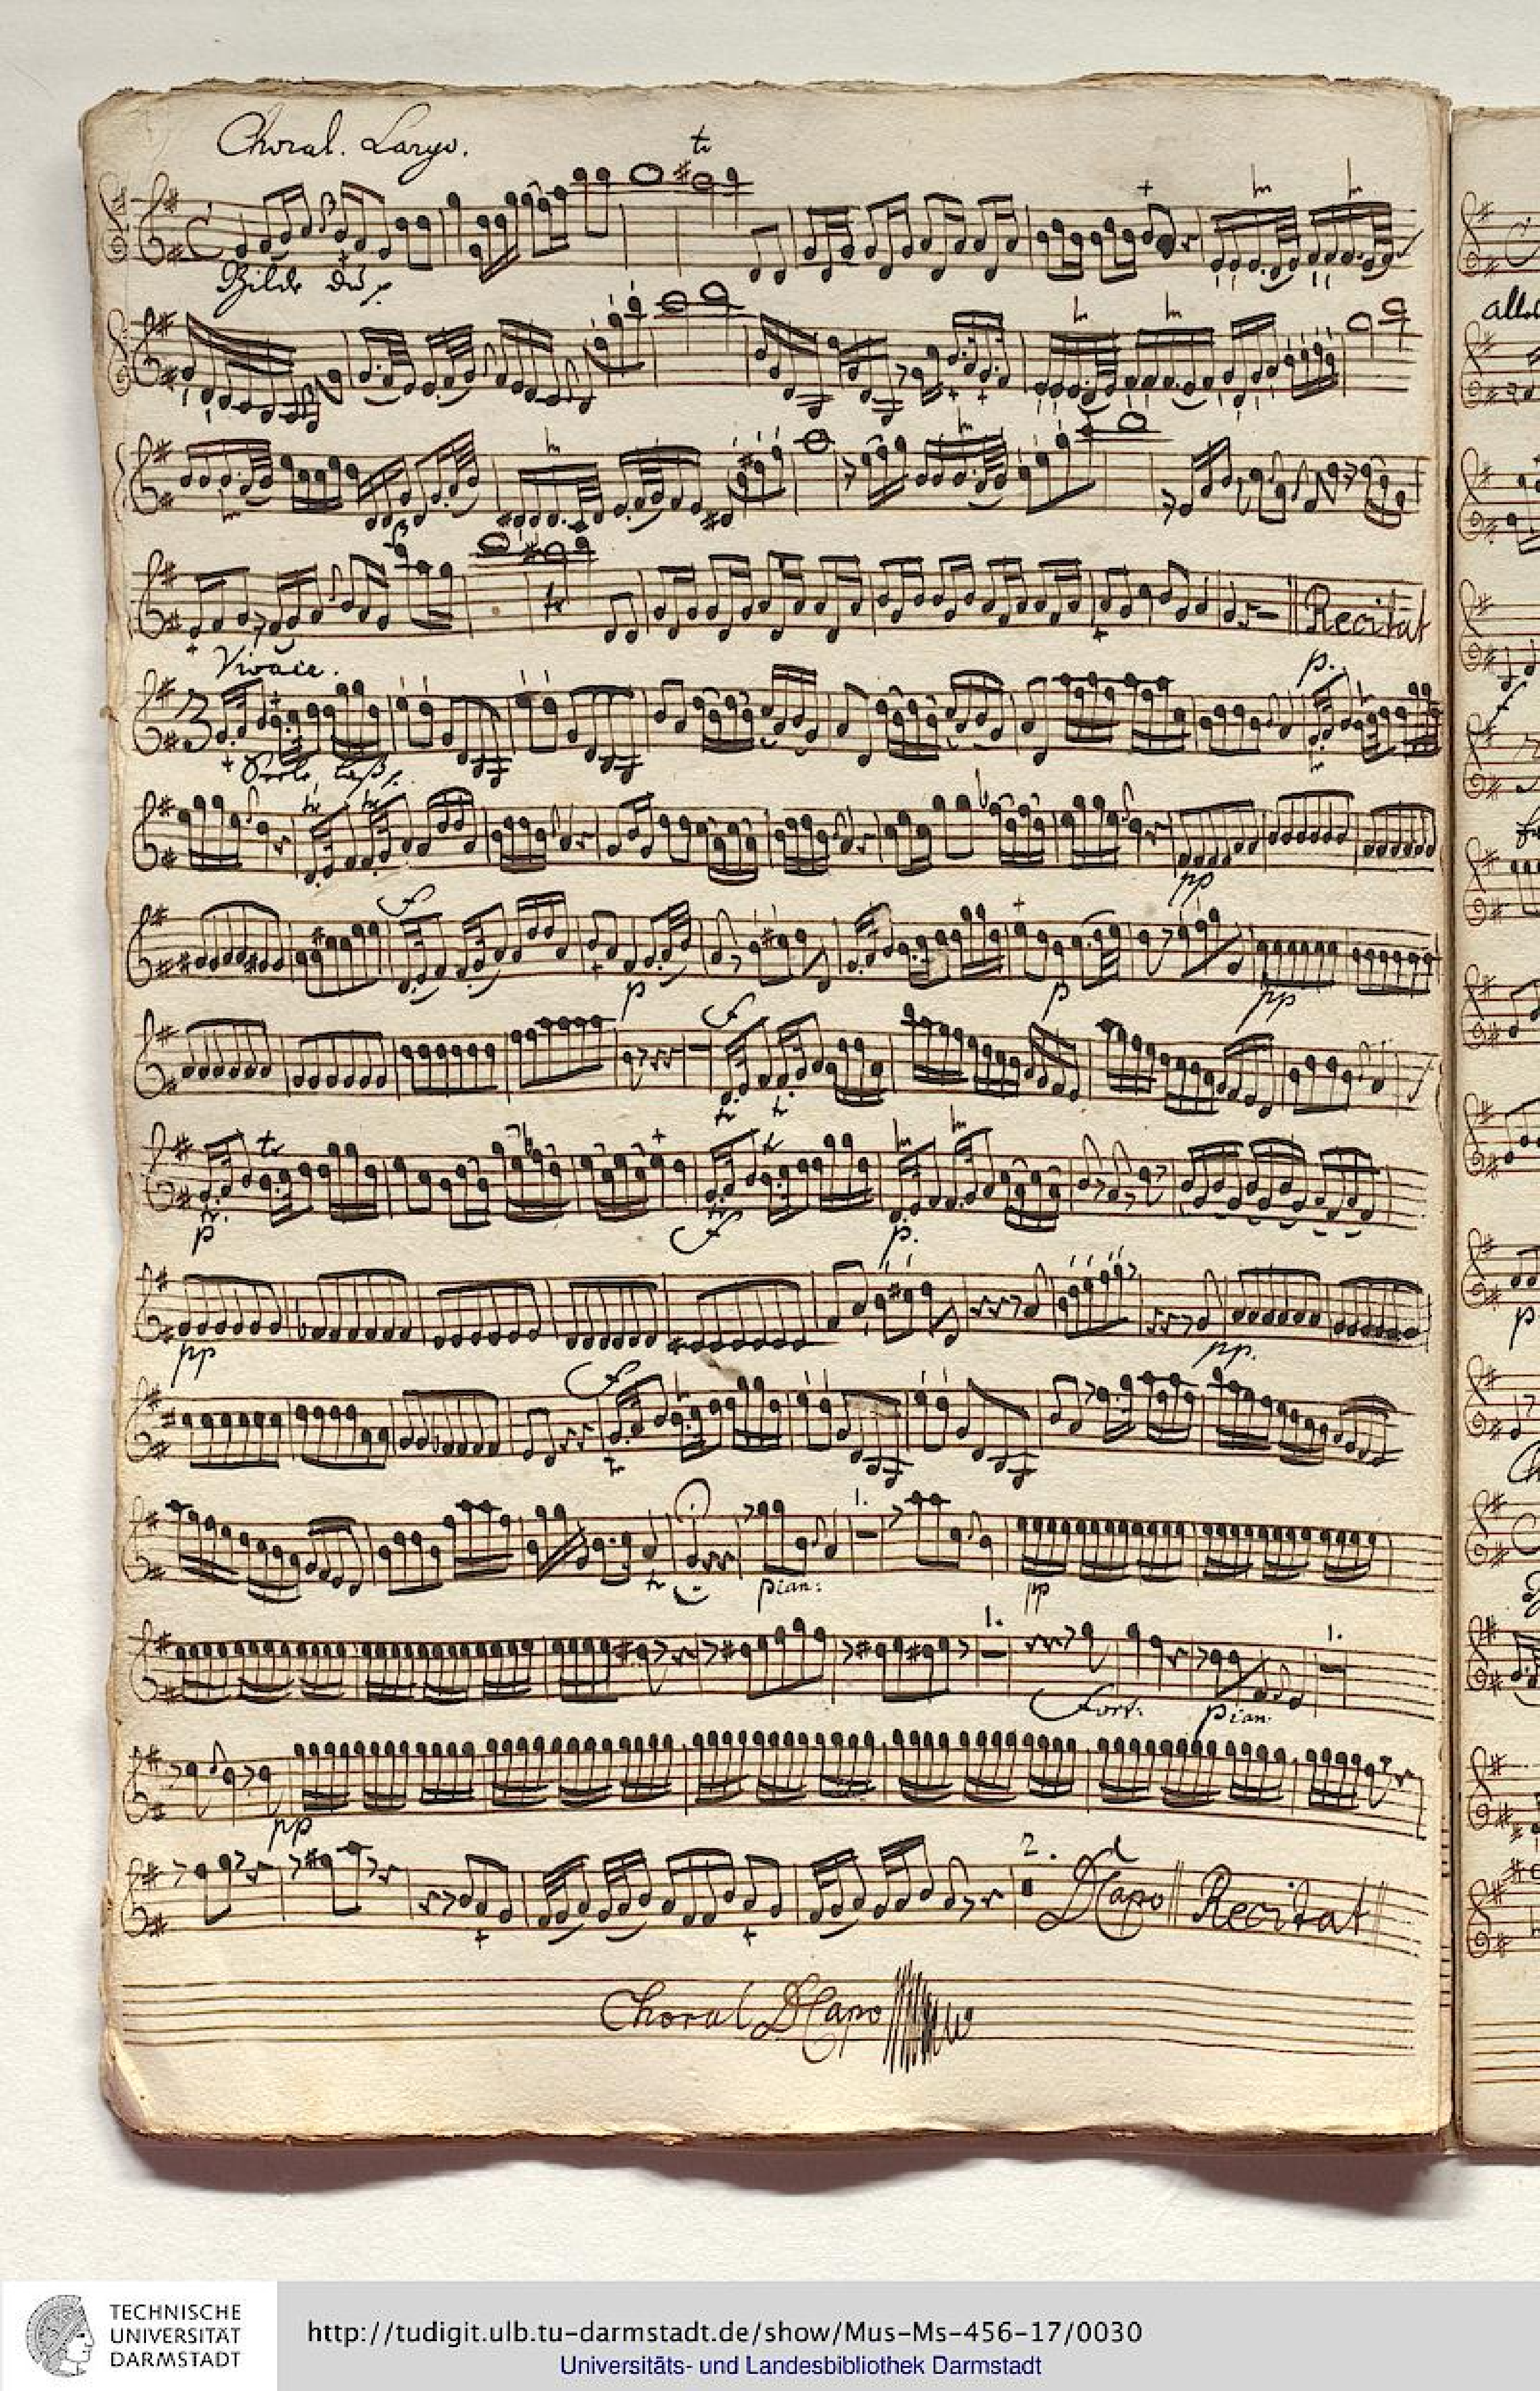 Choral. Largo.
tr
Bilde du
Recitat
Vivace.
p.
pp
f
p
p
pp
f
tr
tr
tr
p
f
p.
pp
pp.
f
1.
pian:
pp
1.
1.
Fort.
pian:
pp
2.
D Capo
Recitat
Choral D Capo
TECHNISCHE
UNIVERSITÄT
DARMSTADT
http://tudigit.ulb.tu-darmstadt.de/show/Mus-Ms-456-17/0030
Universitäts- und Landesbibliothek Darmstadt